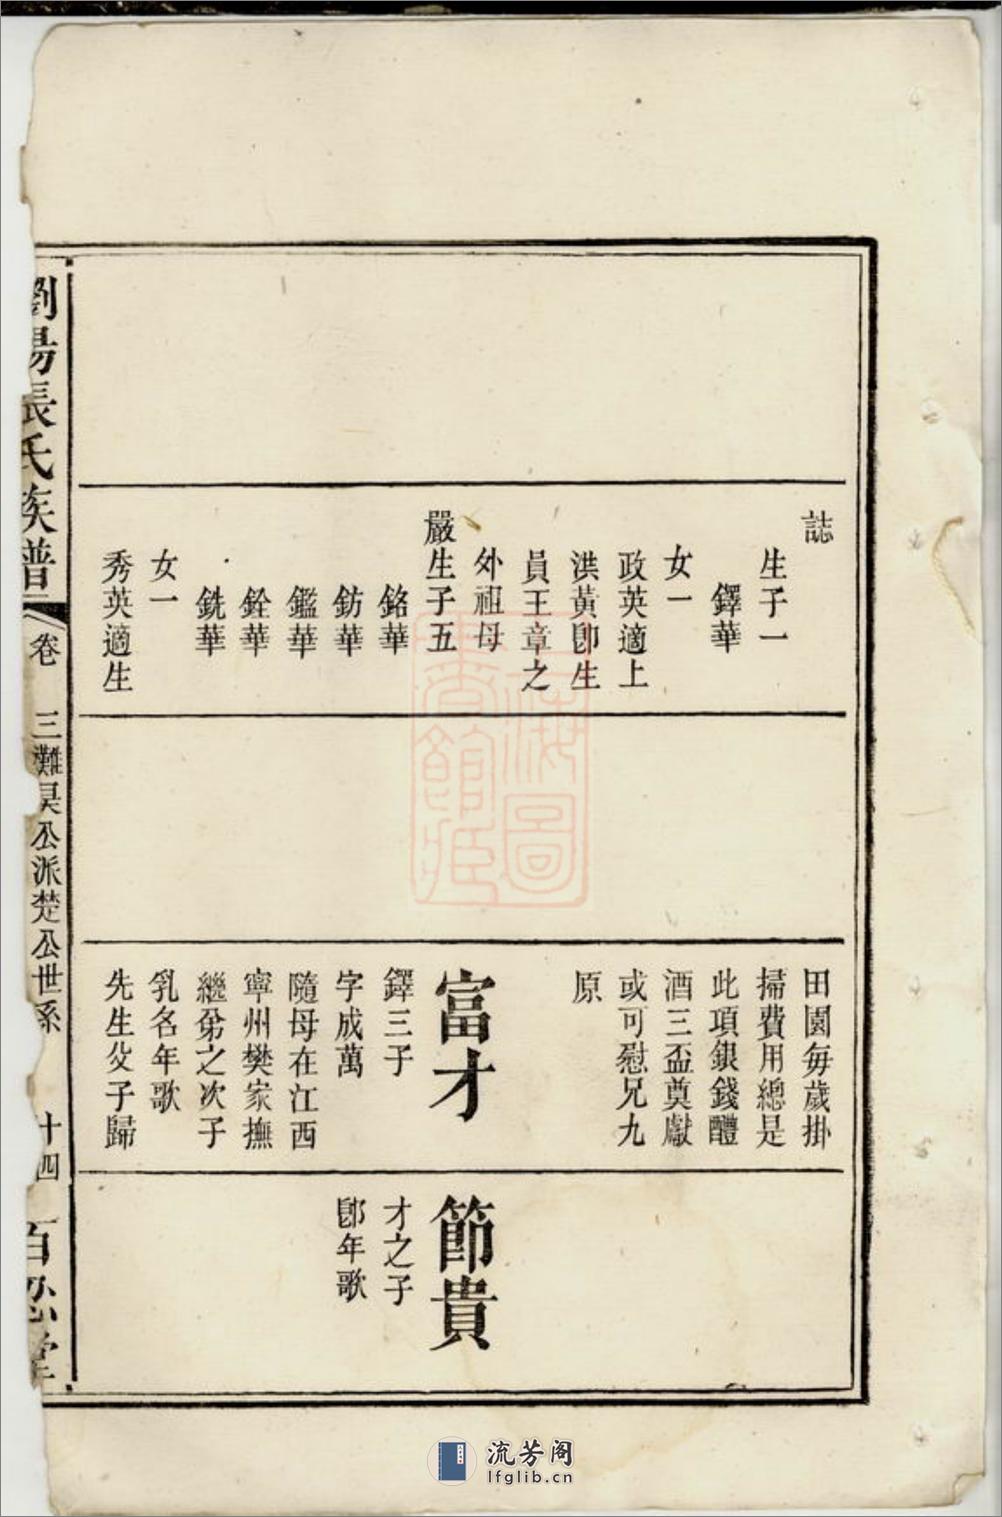 誌
生子一
鐸華
女一
政英適上
洪黃卽生
員王章之
外祖母
嚴生子五
銘華
鈁華
鑑華
銓華
銑華
女一
秀英適生
田園每歲掛
掃費用總是
此項銀錢醴
酒三盃奠獻
或可慰兄九
原
富才
鐸三子
字成萬
隨母在江西
寧州樊家撫
繼弟之次子
乳名年歌
先生父子歸
節貴
才之子
卽年歌
劉陽張氏族譜
卷 三灘昊公派楚公世系 十四
百忍堂
上海圖
書館藏
流芳阁
lfglib.cn